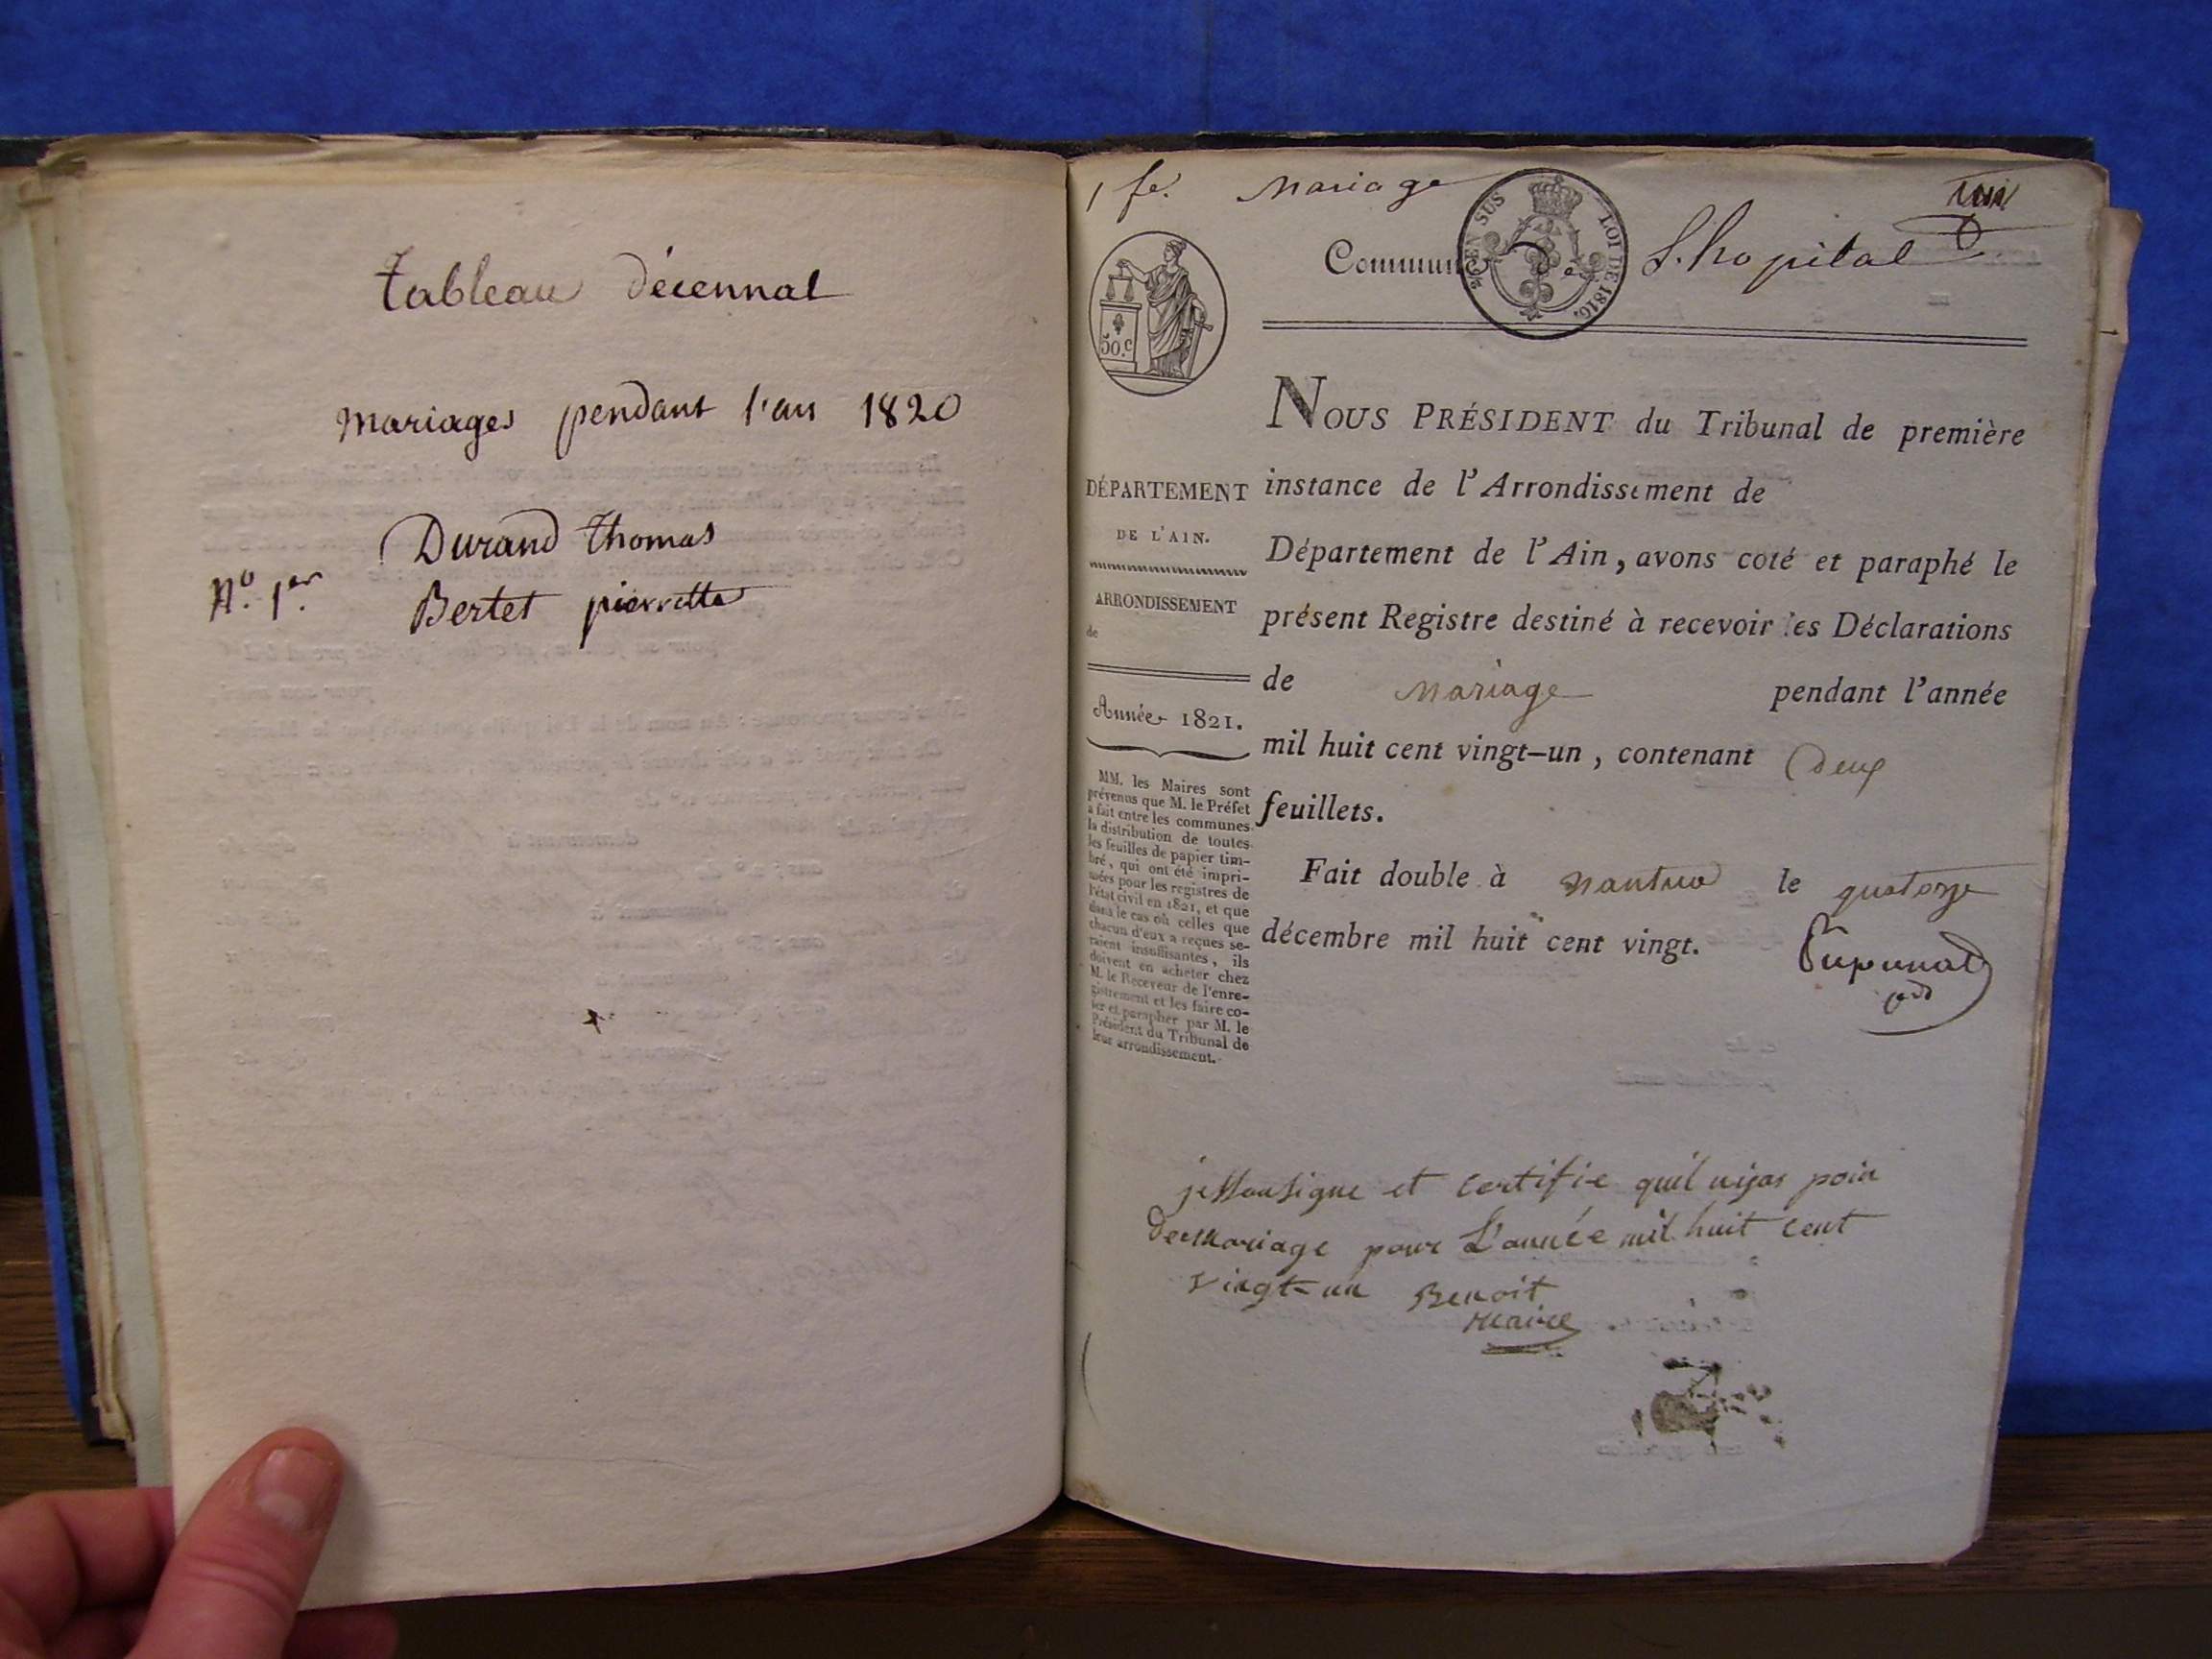 tableau décennal
Mariages pendant l'an 1820
Durand Thomas
N.º 1.er
Bertet pierrette
1 fe. Mariage
Commune de L.hopital
2 CEN SUS LOI DE 1816.
50.c
NOUS PRÉSIDENT du Tribunal de première
instance de l'Arrondissement de
Département de l'Ain, avons coté et paraphé le
présent Registre destiné à recevoir les Déclarations
de Mariage pendant l'année
mil huit cent vingt-un, contenant Deux
feuillets.
Fait double à Nantua le quatorze
décembre mil huit cent vingt.
DÉPARTEMENT
DE L'AIN.
ARRONDISSEMENT
de
Année 1821.
MM. les Maires sont
prévenus que M. le Préfet
a fait entre les communes
la distribution de toutes
les feuilles de papier tim-
bré, qui ont été impri-
mées pour les registres de
l'état civil en 1821, et que
dans le cas où celles que
chacun d'eux a reçues se-
raient insuffisantes, ils
doivent en acheter chez
M. le Receveur de l'enre-
gistrement et les faire co-
ter et parapher par M. le
Président du Tribunal de
leur arrondissement.
je Soussigne et certifie quil nijas poin
de Mariage pour L'année mil huit cent
vingt-un Benoit
Maire